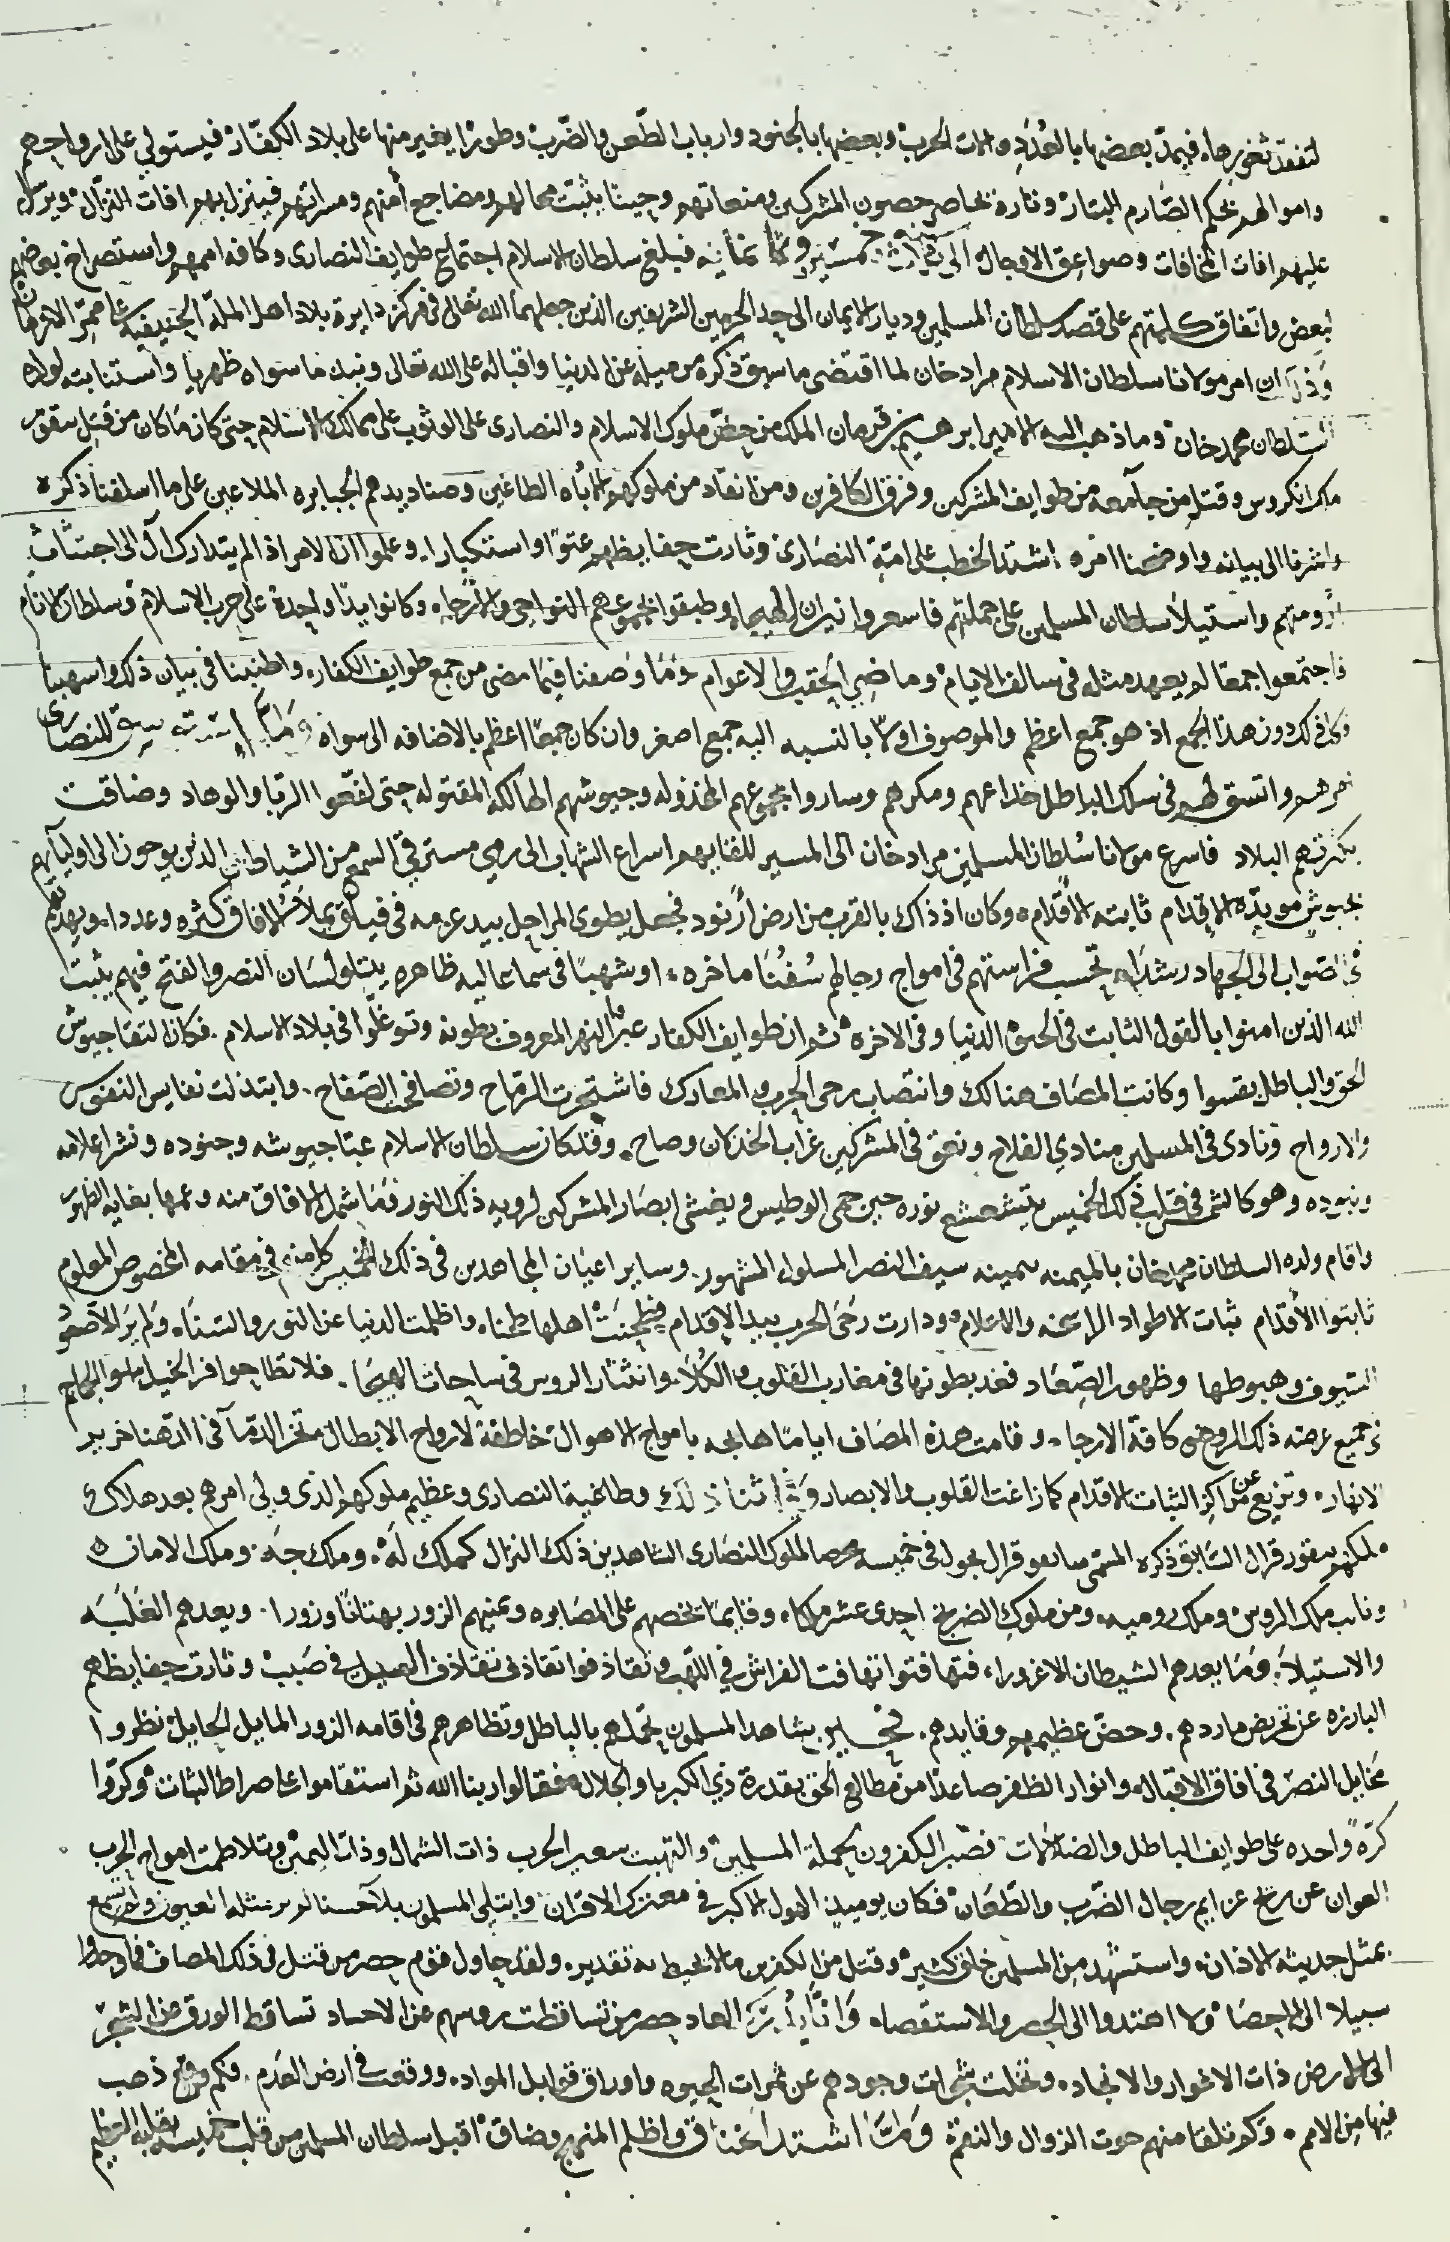 لتفقد ثغورها، فيمد بعضها بالعُدَدِ والات الحرب وبعضها بالجنود وارباب الطّعن والضّرب وطورًا يغير منها على بلاد الكفّار فيستولي على ارواحهم
واموالهم بحكم الصّارم البتّار وتارة يحاصر حصون المشركين ومنعاتهم وحينًا يثبت محالهم ومضاجع أمنهم ومسراتهم فينزل بهم افات النزّال ويرسل
عليهم افات المخافات وصواعق الاوجال الى سنة ثلاث خمسين وثمانمأيه فبلغ سلطان الاسلام اجتماع طوايف النصارى وكافه اممهم واستصراخ بعضهم
ببعض واتفاق كلمتهم على قصد سلطان المسلمين وديار الايمان الى حد الحرمين الشريفين الذين جعلهما الله تعالى في مركز دايرة بلاد اهل الملّة الحنيفيّة على ممرّ الازمان
وذلك ان امر مولانا سلطان الاسلام مراد خان لما اقتضى ما سبق ذكره من ميله عن الدنيا واقباله على الله تعالى ونبذ ما سواه ظهريا واستنابته لولده
السلطان محمد خان وما ذهب اليه الامير ابرهيم بن قرمان الملك من حضّ ملوك الاسلام والنصارى على الوثوب على ممالك الاسلام حتى كان ما كان من قتل ببقور
ملك انكروس وقتل من جا معه من طوايف المشركين وفرق الكافرين ومن انقاد من ملوكهم الاباه الطاغين وصناديدهم الجبابره الملاعين على ما اسلفنا ذكره
واشرنا الى بيانه واوضحنا امره اشتد الخطب على امّة النصارى وثارت حفايظهم عتوّا واستكبارا وعلموا ان الامر اذ لم يتدارك آل الى اجتثاث
ارومتهم واستيلا سلطان المسلمين على جملتهم فاسعروا نيران الهيجا، وطبقوا بجموعهم النواحى والارجاء وكانوا يدًا واحدة على حرب الاسلام وسلطان الانام
فاجتمعوا جمعًا لم يعهد مثله في سالف الايام وماضي الحقب والاعوام وما وصفنا فيما مضى من جمع طوايف الكفار واطنبنا في بيان ذلك واسهبنا
ذلك دون هذا الجمع اذ هو جمع اعظم والموصوف اولا بالنسبه اليه جمع اصغر وان كان جمعًا اعظم بالاضافه الى سواه ولما استتب للنصارى
امرهم واتسق لهم في سلك الباطل خداعهم ومكرهم وساروا بجموعهم المخذوله وجيوشهم الهالكه المقتوله حتى لفّعوا الربا والوهاد وضاقت
بكثرتهم البلاد فاسرع مولانا سُلطان المسلمين مراد خان الى المسير للقايهم اسراع الشهاب الى رمي مسترقي السمع من الشياطين الذين يوحون الى اوليآيهم
بجيوش مويدّه الاقدام ثابته الاقدام وكان اذ ذاك بالقرب من ارض ارنود فجعل يطوى المراحل بيد عزمه في فيلق يملا الافاق كثره وعددا ويهديهم
الى الجهاد رشدا تحسب فراستهم في امواج رجالهم سُفُنًا ماخره، او شهبًا في سما عاليه ظاهره يتلو لسان النصر والفتح فيهم يثبت
الله الذين امنوا بالقول الثابت في الحيوة الدنيا وفي الاخره ثم ان طوايف الكفار عبروا النهر المعروف بطونه وتوغلوا في بلاد الاسلام فكان التقا جيوش
الحق والباطل بقسوا وكانت المصاف هنالك وانتصاب رحى الحرب والمعارك فاشتجرت الرماح وتصافحت الصّفاح وابتذلت نفايس النفوس
والارواح ونادى في المسلمين منادي الفلاح ونعق في المشركين غراب الخذلان وصاح وقد كان سلطان الاسلام عبّا جيوشه وجنوده ونشر اعلامه
وبنوده وهو كالشمس في قلب ذلك الخميس يتشعشع نوره حين حمي الوطيس ويغشى ابصار المشركين لرويه ذلك النور فما شمل الافاق منه وعمها بغايه الظهور
واقام ولده السلطان محمد خان بالميمنه يمينه سيف النصر المسلول المشهور وساير اعيان المجاهدين في ذلك الخميس كل منهم في مقامه المخصوص المعلوم
ثابتوا الأقدام ثبات الاطواد الراسخه والاعلام ودارت رحَى الحرب بيد الاقدام فطحنت اهلها طحنا، واظلمت الدنيا عن النور والسنا، ولم ير الا صعود
السيوف وهبوطها وظهور الصّعاد فغد بطونها في مغارب القلوب والكُلا، وانتثار الروس في ساحات الهيجا. فلا تطا حوافر الخيل سوا الجماجم
في جميع عرصه ذلك المرج كافة الارجا، وقامت هذه المصاف ايامًا هايجه بامواج الاهوال خاطفة لارواح الابطال تخر الدمآ في
الانهار، وتزيغ عن مراكز الثبات الاقدام كما زاغت القلوب والابصار وفي اثنا ذلك وطاغية النصارى وعظيم ملوكهم الذي ولي امرهم بعد هلاك
ملكهم ببقور قرال السابق ذكره المسمى سانعو قرال يجول في خميسه محرضا لملوك النصارى الشاهدين ذلك النزال كملك لَهْ، وملك جَه، وملك الامان
ونايب ملك الروس وملك روميه ومن ملوك الضريخ احدى عشر ملكا، وقايمًا يحضهم على المصابره ويمنيهم الزور بهتانا وزورا. ويعدهم الغلبه
والاستيلا، وما يعدهم الشيطان الا غرورا، فتهافتوا تهافت الفراش في اللهب وتقاذفوا تقاذف السيل في صبب وثارت حفايظهم
البارزه عن تحريض ماردهم. وحضّ عظيمهم وقايدهم. فحين شاهد المسلمون تحملهم بالباطل وتظاهرهم في اقامه الزور المايل الحايل نظروا
مخايل النصر في افاق الاقبال وانوار الظفر صاعدًا من مطالع الحق بقدرة ذي الكبريا والجلال فقالوا ربنا الله ثم استقاموا على صراط الثبات وكرّوا
كرّةً واحده على طوايف الباطل والضلالات فصبر الكفرون لحملة المسلمين والتهبت سعير الحرب ذات الشمال وذات اليمين وتلاطمت امواج الحرب
العوان عن ريح عزايم رجال الضّرب والطّعان فكان يوميذٍ الهول الاكبر في معترك الاقران وابتلى المسلمون بلآ حسنا لم ير مثله العيون ولم تسمع
بمثل حديثه الاذان، واستشهد من المسلمين خلق كثير وقتل من الكفرين ما لا يحيط به تقدير، ولقد حاول قوم حصر من قتل في ذلك المصاف فما وجدوا
سبيلا الى الاحصا ولا اهتدوا الى الحصر والاستقصاء وانّا يُدرك العاد حصر من تساقطت روسهم عن الاجساد تساقط الورق عن الشجر
الى الارض ذات الاغوار والانجاد، وتخلت شجرات وجودهم عن ثمرات الحيوه واوراق قوابل المواد، ووقعت في ارض العدم. فكم ذهب
فيها من الامم، وكم تلقا منهم حوت الزوال والنقمة ولما اشتد الخناق واظلم المنهج وضاق اقبل سلطان المسلمين من قلب خميسه بقلبه العظيم